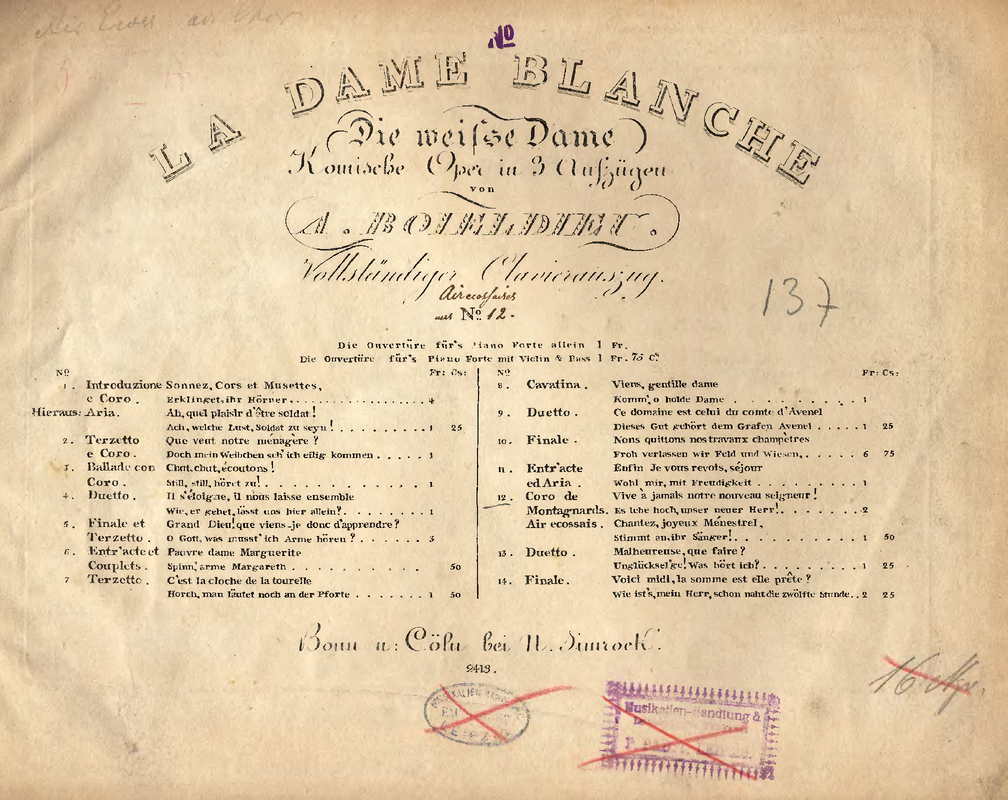 No
LA DAME BLANCHE
Die weiſse Dame
Komische Oper in 3 Aufzügen
von
A. BOIELDIEU.
Vollständiger Clavierauszug.
Air ecossaises
No 12.
137
Die Ouvertüre für's Piano Forte allein 1 Fr.
Die Ouvertüre für's Piano Forte mit Violin & Bass 1 Fr. 75 Cs.
No Fr: Cs:
1. Introduzione Sonnez, Cors et Musettes,
e Coro. Erklinget, ihr Hörner. 4
Hieraus: Aria. Ah, quel plaisir d'être soldat!
Ach, welche Lust, Soldat zu seyn! 1 25
2. Terzetto Que veut notre ménagère?
e Coro. Doch mein Weibchen seh' ich eilig kommen 1
3. Ballade con Chut, chut, écoutons!
Coro. Still, still, höret zu! 1
4. Duetto. Il s'éloigne, il nous laisse ensemble
Wie, er gehet, lässt uns hier allein? 1
5. Finale et Grand Dieu! que viens-je donc d'apprendre?
Terzetto. O Gott, was musst' ich Arme hören? 3
6. Entr'acte et Pauvre dame Marguerite
Couplets. Spinn, arme Margareth 50
7 Terzetto. C'est la cloche de la tourelle
Horch, man läutet noch an der Pforte 1 50
No Fr: Cs:
8. Cavatina. Viens, gentille dame
Komm', o holde Dame 1
9. Duetto. Ce domaine est celui du comte d'Avenel
Dieses Gut gehört dem Grafen Avenel 1 25
10. Finale. Nons quittons nos travaux champêtres
Froh verlassen wir Feld und Wiesen, 6 75
11. Entr'acte Enfin Je vous revois, séjour
ed Aria. Wohl mir, mit Freudigkeit 1
12. Coro de Vive à jamais notre nouveau seigneur!
Montagnards. Es lebe hoch, unser neuer Herr! 2
Air ecossais. Chantez, joyeux Ménestrel,
Stimmt an, ihr Sänger! 1 50
13. Duetto. Malheureuse, que faire?
Unglücksel'ge! Was hört ich? 1 25
14. Finale. Voici midi, la somme est elle prête?
Wie ist's, mein Herr, schon naht die zwölfte Stunde 2 25
Bonn u: Cöln bei N. Simrock.
2413.
Musikalien-Handlung &